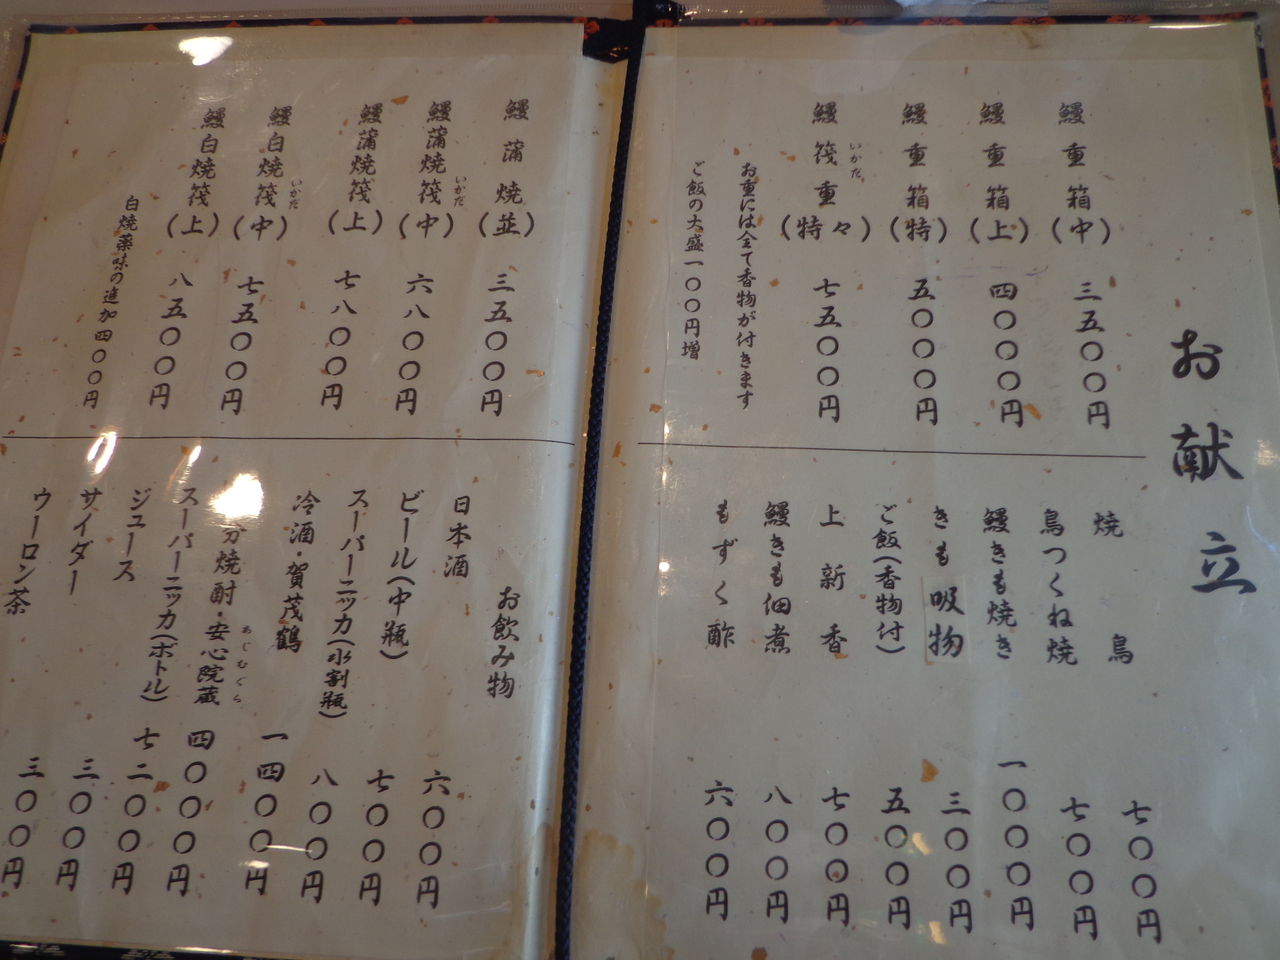 お献立
鰻重箱(中) 三五〇〇円
鰻重箱(上) 四〇〇〇円
鰻重箱(特) 五〇〇〇円
鰻筏重(特々) 七五〇〇円
いかだ
お重には全て香物が付きます
ご飯の大盛一〇〇円増
焼鳥 七〇〇円
鳥つくね焼 七〇〇円
鰻きも焼き 一〇〇〇円
きも吸物 三〇〇円
ご飯(香物付) 五〇〇円
上新香 七〇〇円
鰻きも佃煮 八〇〇円
もずく酢 六〇〇円
鰻蒲焼(並) 三五〇〇円
鰻蒲焼筏(中) 六八〇〇円
いかだ
鰻蒲焼筏(上) 七八〇〇円
鰻白焼筏(中) 七五〇〇円
いかだ
鰻白焼筏(上) 八五〇〇円
白焼薬味の追加四〇〇円
お飲み物
日本酒 六〇〇円
ビール(中瓶) 七〇〇円
スーパーニッカ(水割瓶) 八〇〇円
冷酒・賀茂鶴 一四〇〇円
分焼酎・安心院蔵 四〇〇〇円
あじむぐら
スーパーニッカ(ボトル) 七二〇〇円
ジュース 三〇〇円
サイダー 三〇〇円
ウーロン茶